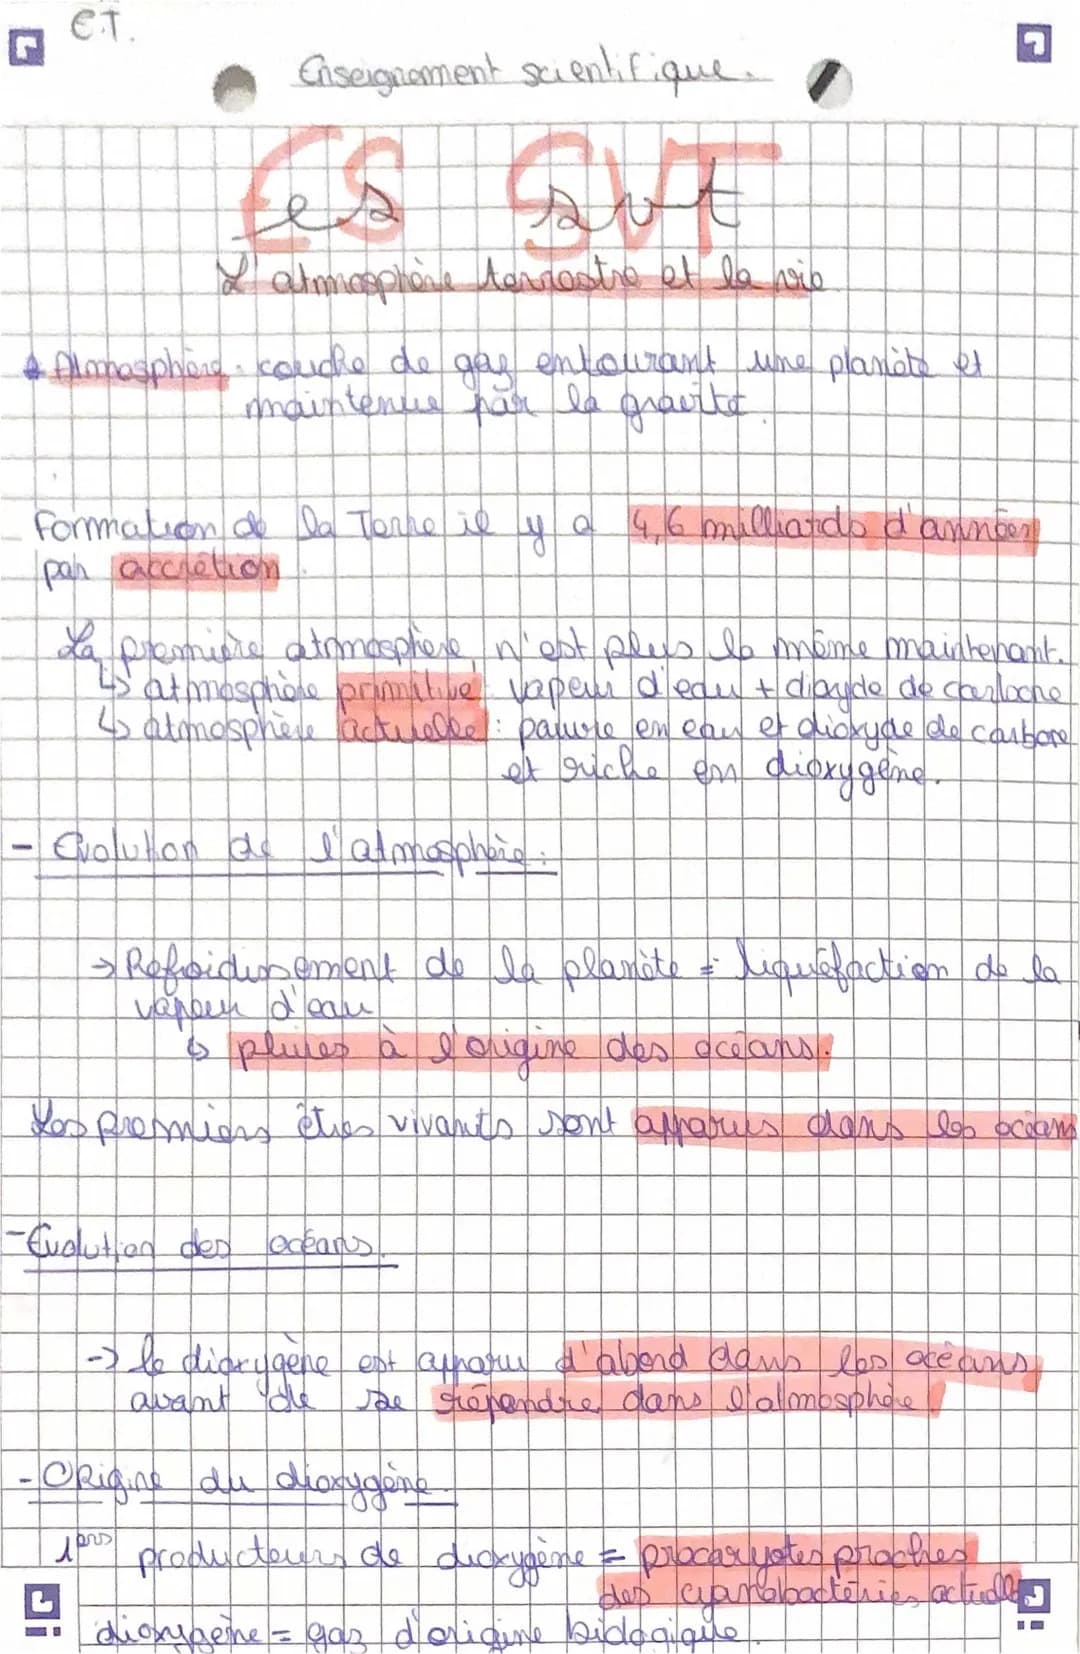 E.T.
Enseignement scientifique.
ES SVT
es svt
L'atmosphère terrestre et la vie
Atmosphère : couche de gaz entourant une planète et
maintenue par la gravité.
Formation de la Terre il y a 4,6 milliards d'années
par accrétion.
La première atmosphère n'est plus la même maintenant.
↳ atmosphère primitive : vapeur d'eau + dioxyde de carbone
↳ atmosphère actuelle : pauvre en eau et dioxyde de carbone
et riche en dioxygène.
- Evolution de l'atmosphère :
→ Refroidissement de la planète = liquéfaction de la
vapeur d'eau
↳ pluies à l'origine des océans.
Les premiers êtres vivants sont apparus dans les océans
- Evolution des océans.
-> le dioxygène est apparu d'abord dans les océans,
avant de se répendre dans l'atmosphère
- Origine du dioxygène
1ers producteurs de dioxygène = procaryotes proches
des cyanobactéries actuelles
dioxygène = gaz d'origine biologique.